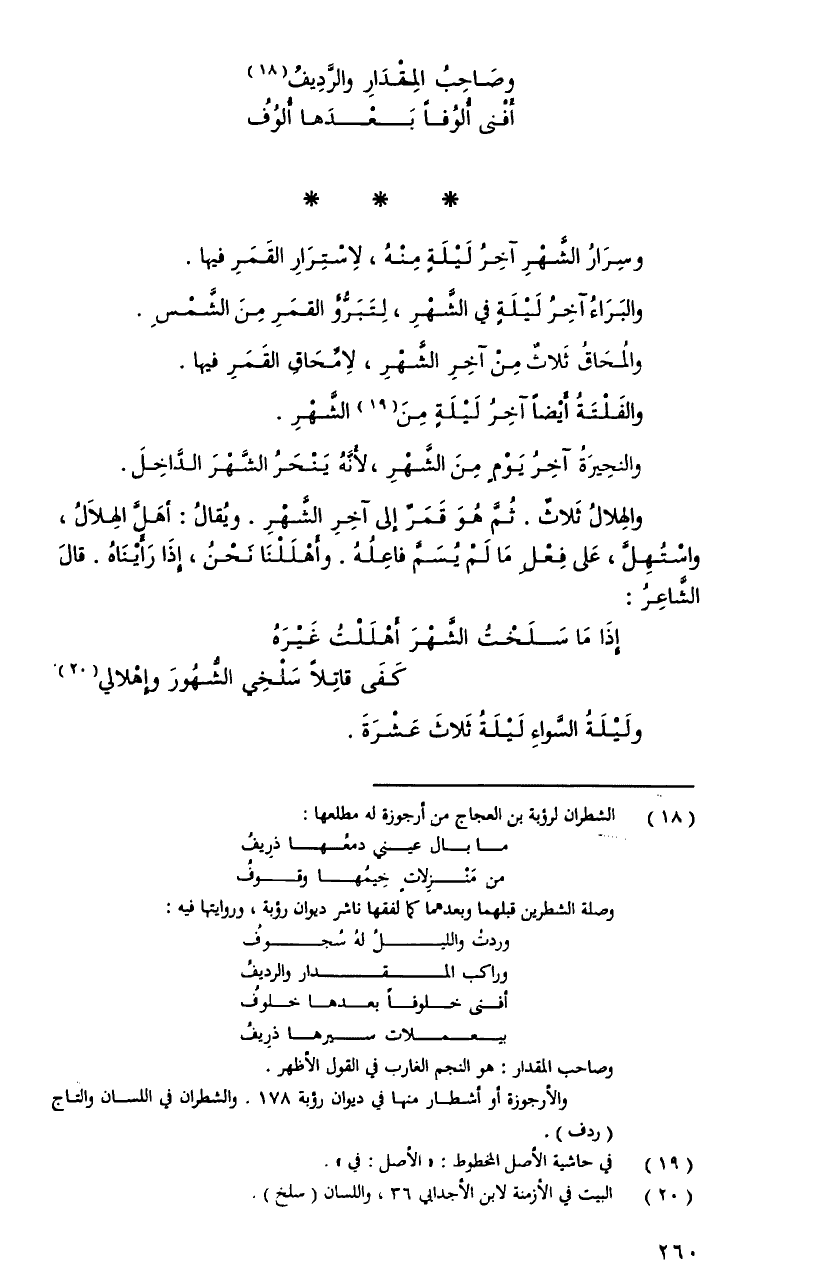 وصَاحِبُ المِقْدَارِ والرَّدِيفُ(١٨)
أَفْنى أُلوُفاً بَعْدَها أُلوُفُ
* * *
وسِرَارُ الشَّهْرِ آخِرُ لَيْلَةٍ مِنْهُ ، لِاسْتِرَارِ القَمَرِ فيها .
والبَرَاءُ آخِرُ لَيْلَةٍ في الشَّهْرِ ، لِتَبَرُّؤِ القمَرِ مِنَ الشَّمْسِ .
والُمحَاقُ ثَلاثٌ مِنْ آخِرِ الشَّهْرِ ، لِامِّحَاقِ القَمَرِ فيها .
والفَلْتَةُ أَيْضاً آخِرُ لَيْلَةٍ مِنَ(١٩) الشَّهْرِ .
والنحِيرَةُ آخِرُ يَوْمٍ مِنَ الشَّهْرِ ،لأَنَّهُ يَنْحَرُ الشهْرَ الدَّاخِلَ .
والهِلالُ ثَلاثٌ . ثُمَّ هُوَ قَمَرٌ إلى آخِرِ الشَّهْرِ . ويُقالُ : أهَلَّ الهِلاَلُ ،
واسْتُهِلَّ ، عَلى فِعْلِ مَا لَمْ يُسَمَّ فاعِلُهُ . وأهْلَلْنَا نَحْنُ ، إذَا رَأيْنَاهُ . قالَ
الشَّاعِرُ :
إذَا مَا سَلَخْتُ الشَّهْرَ أهْلَلْتُ غَيْرَهُ
كَفَى قاتِلاً سَلْخِي الشُّهُورَ وإهْلالي(٢٠)
ولَيْلَةُ السَّواءِ لَيْلَةُ ثَلاثَ عَشْرَةَ .
(١٨) الشطران لرؤبة بن العجاج من أرجوزة له مطلعها :
ما بال عيني دمعُها ذريفُ
من مَنْزِلاتٍ خِيمُها وقوفُ
وصلة الشطرين قبلهما وبعدهما كما لفقها ناشر ديوان رؤبة ، وروايتها فيه :
وردتُ والليلُ لهُ سُجوفُ
وراكب المقدار والرديفُ
أفنى خلوفاً بعدها خلوفُ
بيعملات سيرها ذريفُ
وصاحب المقدار : هو النجم الغارب في القول الأظهر .
والأرجوزة أو أشطار منها في ديوان رؤبة ١٧٨ . والشطران في اللسان والتاج
( ردف ) .
(١٩) في حاشية الأصل المخطوط : « الأصل : في » .
(٢٠) البيت في الأزمنة لابن الأجدابي ٣٦ ، واللسان ( سلخ ) .
٢٦٠